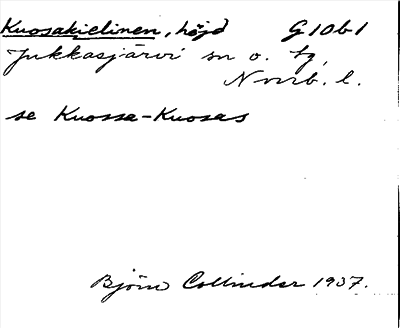 Kuosakielinen, höjd G10b1
Jukkasjärvi sn o. tg,
Norrb. l.
se Kuossa-Kuosas
Björn Collinder 1937.